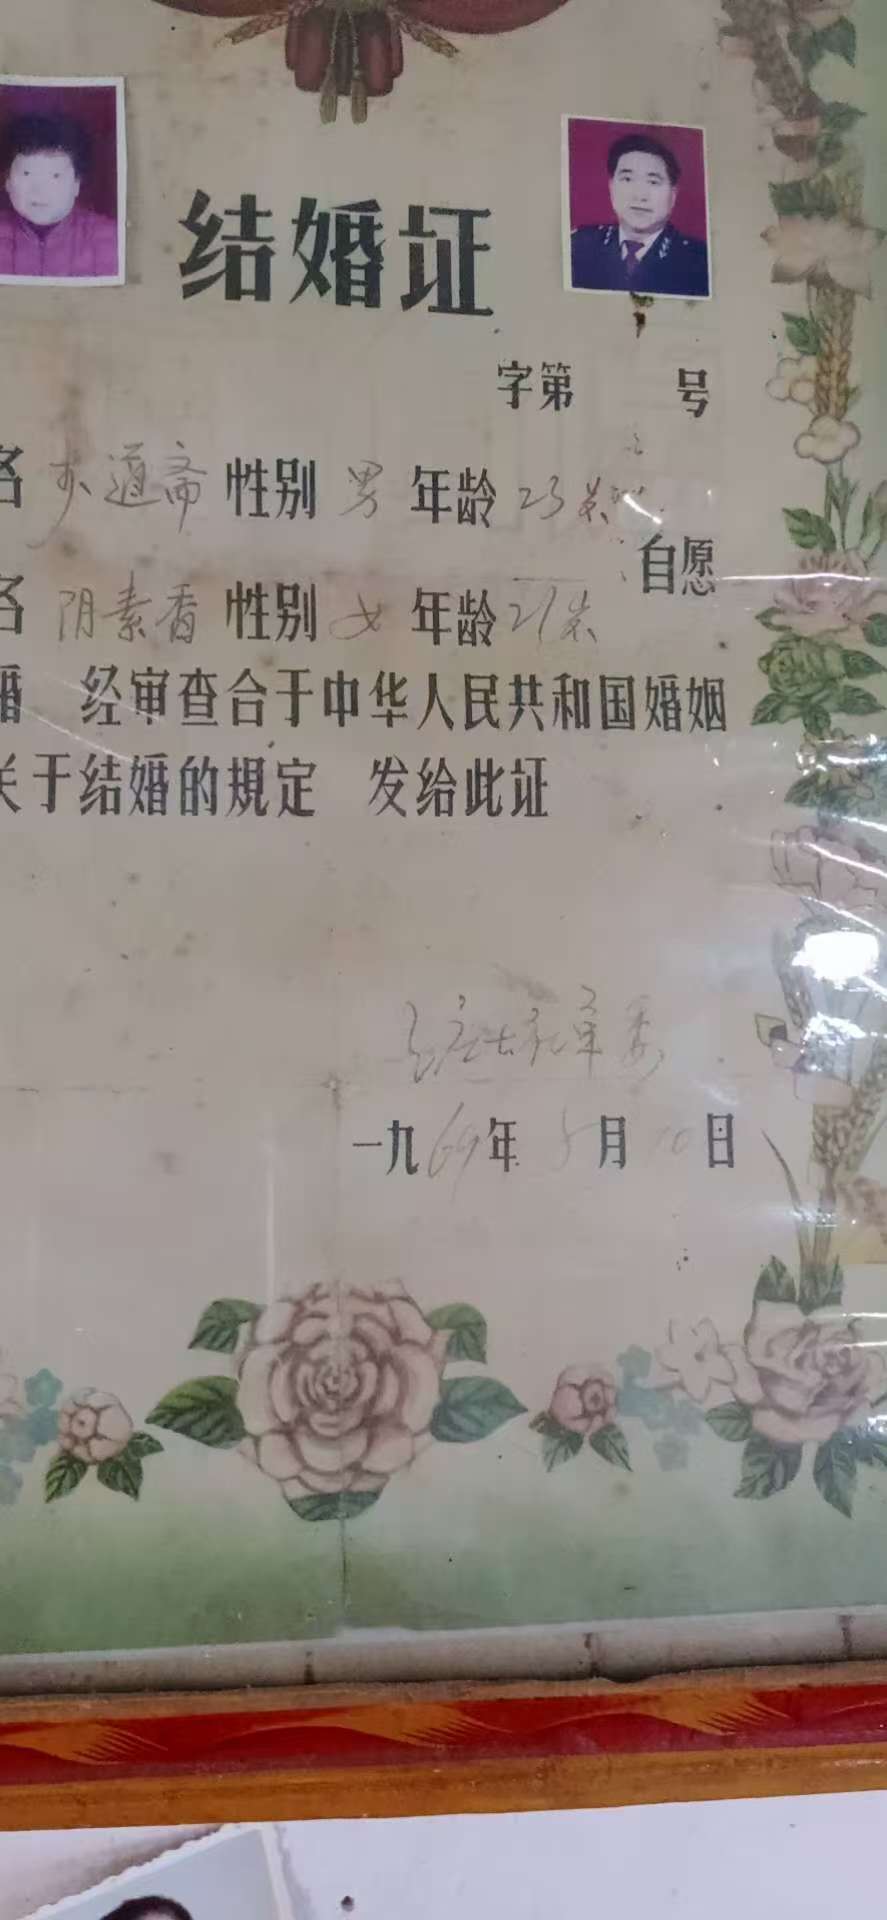 结婚证
字第 号
名 步道斋 性别 男 年龄 23岁
自愿
名 阴素香 性别 女 年龄 21岁
婚 经审查合于中华人民共和国婚姻
关于结婚的規定 发给此证
庄大队革委
一九69年 5月 20日